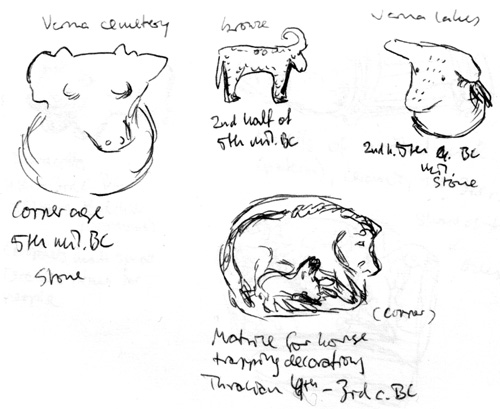 Varna cemetery
Copper age
5th mil. BC
Stone
bronze
2nd half of
5th mil. BC
Varna lakes
2nd h. 5th BC
mil.
Stone
(copper)
Matrice for horse
trapping decorations
Thracian 4th - 3rd c. BC